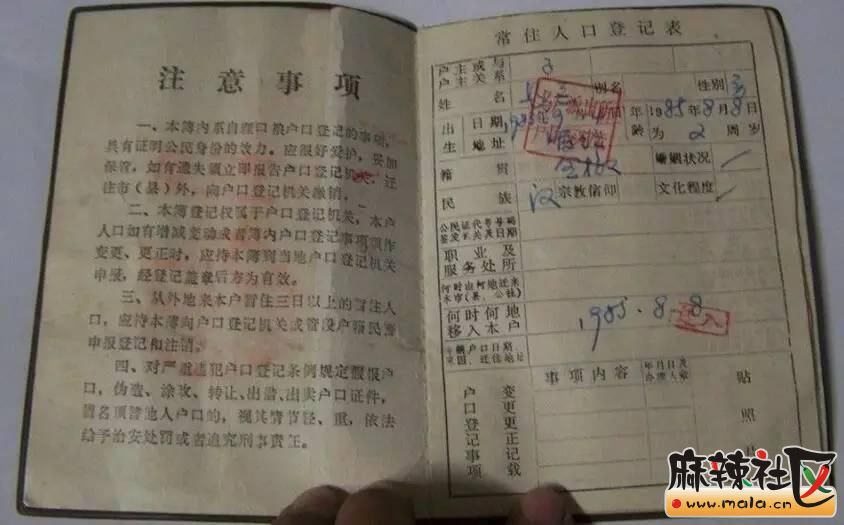 注意事项
一、本簿内系自理口粮户口登记的事项，
具有证明公民身份的效力。应很好爱护，妥加
保管，如有遗失须立即报告户口登记机关，迁
往市（县）外，向户口登记机关缴销。
二、本簿登记权属于户口登记机关，本户
人口如有增减变动或者簿内户口登记事项须作
变更、更正时，应持本簿到当地户口登记机关
申报，经登记盖章后方为有效。
三、从外地来本户暂住三日以上的暂住人
口，应持本簿向户口登记机关或管段户籍民警
申报登记和注销。
四、对严重违犯户口登记条例规定假报户
口，伪造、涂改、转让、出借、出卖户口证件，
冒名顶替他人户口的，视其情节轻、重，依法
给予治安处罚或者追究刑事责任。
常住人口登记表
户主或与
户主关系
子
姓名
别名
性别
出生
日期
地址
年龄
1985年8月8日
为2周岁
籍贯
婚姻状况
民族
汉
宗教信仰
文化程度
公民证代号号码
签发机关及日期
职业及
服务处所
何时由何地迁来
本市（县、公社）
何时何地
移入本户
1985.8.8
迁入
户口登记事项
变更更正记载
事项内容
年月日及
办理人章
贴
照
片
麻辣社区
www.mala.cn